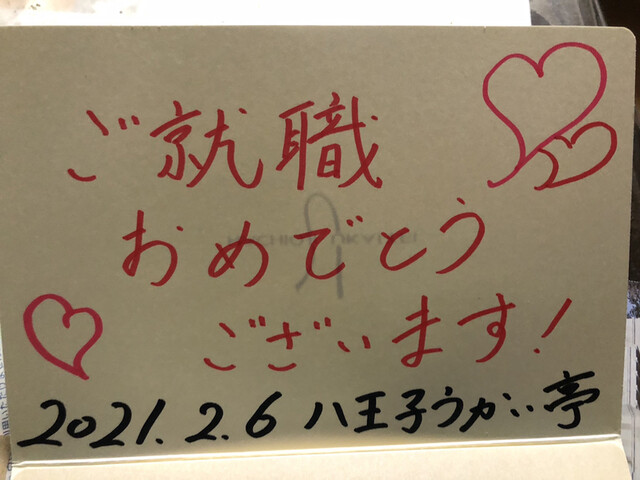 ご就職
おめでとう
ございます!
2021.2.6 八王子うかい亭